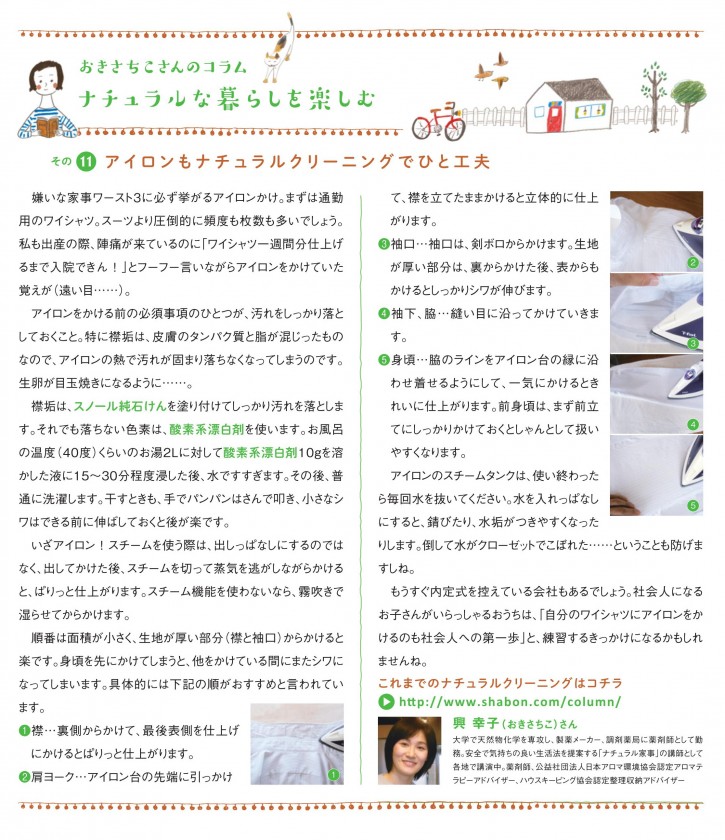 おきさちこさんのコラム
ナチュラルな暮らしを楽しむ
その 11 アイロンもナチュラルクリーニングでひと工夫
嫌いな家事ワースト3に必ず挙がるアイロンかけ。まずは通勤
用のワイシャツ。スーツより圧倒的に頻度も枚数も多いでしょう。
私も出産の際、陣痛が来ているのに「ワイシャツ一週間分仕上げ
るまで入院できん！」とフーフー言いながらアイロンをかけていた
覚えが（遠い目……）。
アイロンをかける前の必須事項のひとつが、汚れをしっかり落と
しておくこと。特に襟垢は、皮膚のタンパク質と脂が混じったもの
なので、アイロンの熱で汚れが固まり落ちなくなってしまうのです。
生卵が目玉焼きになるように……。
襟垢は、スノール純石けんを塗り付けてしっかり汚れを落としま
す。それでも落ちない色素は、酸素系漂白剤を使います。お風呂
の温度（40度）くらいのお湯2Lに対して酸素系漂白剤10gを溶
かした液に15～30分程度浸した後、水ですすぎます。その後、普
通に洗濯します。干すときも、手でパンパンはさんで叩き、小さなシ
ワはできる前に伸ばしておくと後が楽です。
いざアイロン！スチームを使う際は、出しっぱなしにするのでは
なく、出してかけた後、スチームを切って蒸気を逃がしながらかける
と、ぱりっと仕上がります。スチーム機能を使わないなら、霧吹きで
湿らせてからかけます。
順番は面積が小さく、生地が厚い部分（襟と袖口）からかけると
楽です。身頃を先にかけてしまうと、他をかけている間にまたシワに
なってしまいます。具体的には下記の順がおすすめと言われていま
す。
❶襟…裏側からかけて、最後表側を仕上げ
にかけるとぱりっと仕上がります。
❷肩ヨーク…アイロン台の先端に引っかけ
1
て、襟を立てたままかけると立体的に仕上
がります。
❸袖口…袖口は、剣ボロからかけます。生地
が厚い部分は、裏からかけた後、表からも
かけるとしっかりシワが伸びます。
❹袖下、脇…縫い目に沿ってかけていきま
す。
❺身頃…脇のラインをアイロン台の縁に沿
わせ着せるようにして、一気にかけるとき
れいに仕上がります。前身頃は、まず前立
てにしっかりかけておくとしゃんとして扱い
やすくなります。
アイロンのスチームタンクは、使い終わった
ら毎回水を抜いてください。水を入れっぱなし
にすると、錆びたり、水垢がつきやすくなった
りします。倒して水がクローゼットでこぼれた……ということも防げま
すしね。
もうすぐ内定式を控えている会社もあるでしょう。社会人になる
お子さんがいらっしゃるおうちは、「自分のワイシャツにアイロンをか
けるのも社会人への第一歩」と、練習するきっかけになるかもしれ
ませんね。
2
3
4
5
これまでのナチュラルクリーニングはコチラ
http://www.shabon.com/column/
興 幸子（おきさちこ）さん
大学で天然物化学を専攻し、製薬メーカー、調剤薬局に薬剤師として勤
務。安全で気持ちの良い生活法を提案する「ナチュラル家事」の講師として
各地で講演中。薬剤師、公益社団法人日本アロマ環境協会認定アロマテ
ラピーアドバイザー、ハウスキーピング協会認定整理収納アドバイザー